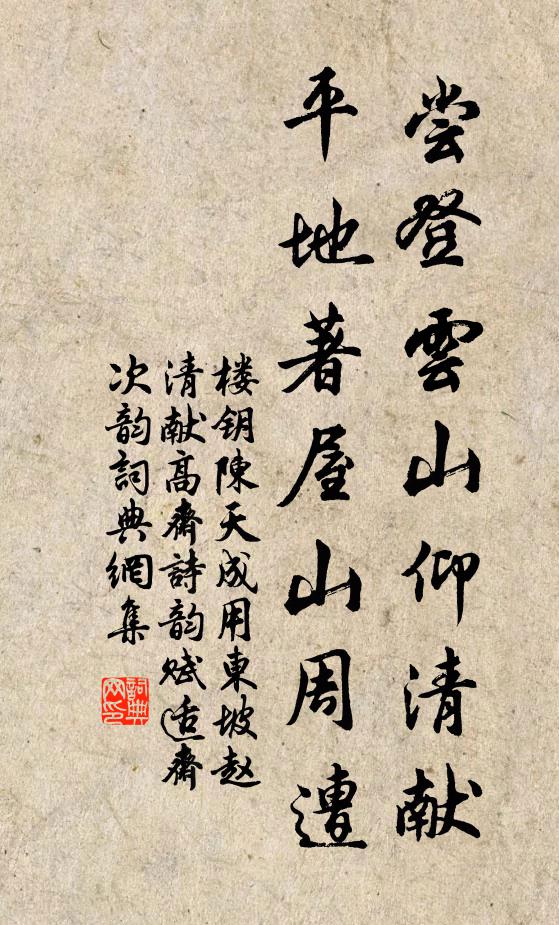 尝登雲山仰清献
平地著屋山周遭
楼钥陳天成用東坡赵
清献高齋詩韵赋适齋
次韵詞典網集
詞典网印